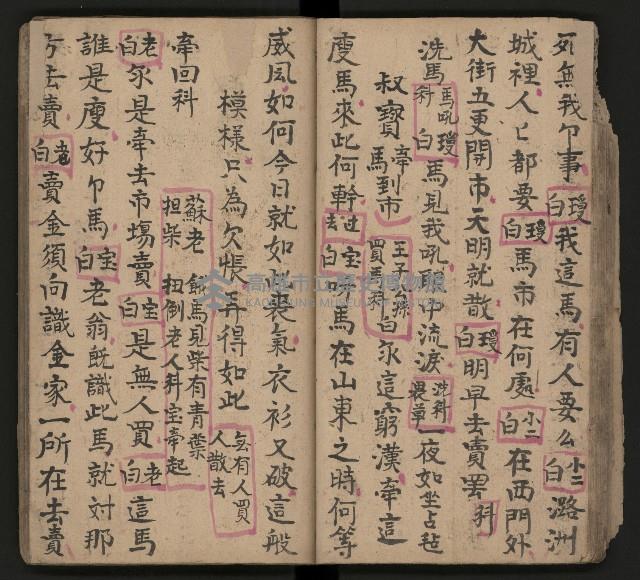 死無我卩事瓊白我這馬有人要么小二白潞洲
城裡人亡都要瓊白馬市在何處小二白在西門外
大街五更開市天明就散瓊白明早去賣罢科
洗馬科馬吼瓊白馬見我吼眼中流淚洗科畏草一夜如坐占毡
叔寳牽馬到市王子孫買馬科白尔這窮漢牽這
瘦馬來此何幹过去宝白馬在山東之時何等
威風如何今日就如喪氣衣衫又破這般
模樣只為欠帳弄得如此無有人買人散去
牽回科蘇老担柴餓馬見柴有青葉扭倒老人科宝牽起
老白尔是牽去市場賣宝白是無人買老白這馬
誰是瘦好卩馬宝白老翁既識此馬就对那
方去賣老白賣金須向識金家一所在去賣
高雄市立歷史博物館
KAOHSIUNG MUSEUM OF HISTORY